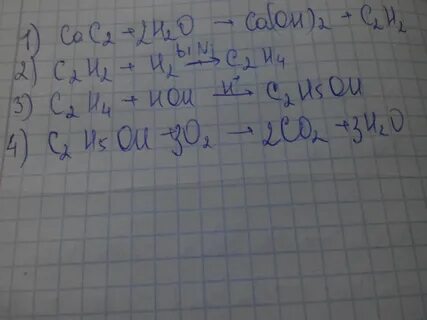 1) CaC2 + 2H2O → Ca(OH)2 + C2H2
2) C2H2 + H2 → C2H4
3) C2H4 + HOH H+ → C2H5OH
4) C2H5OH + 3O2 → 2CO2 + 3H2O